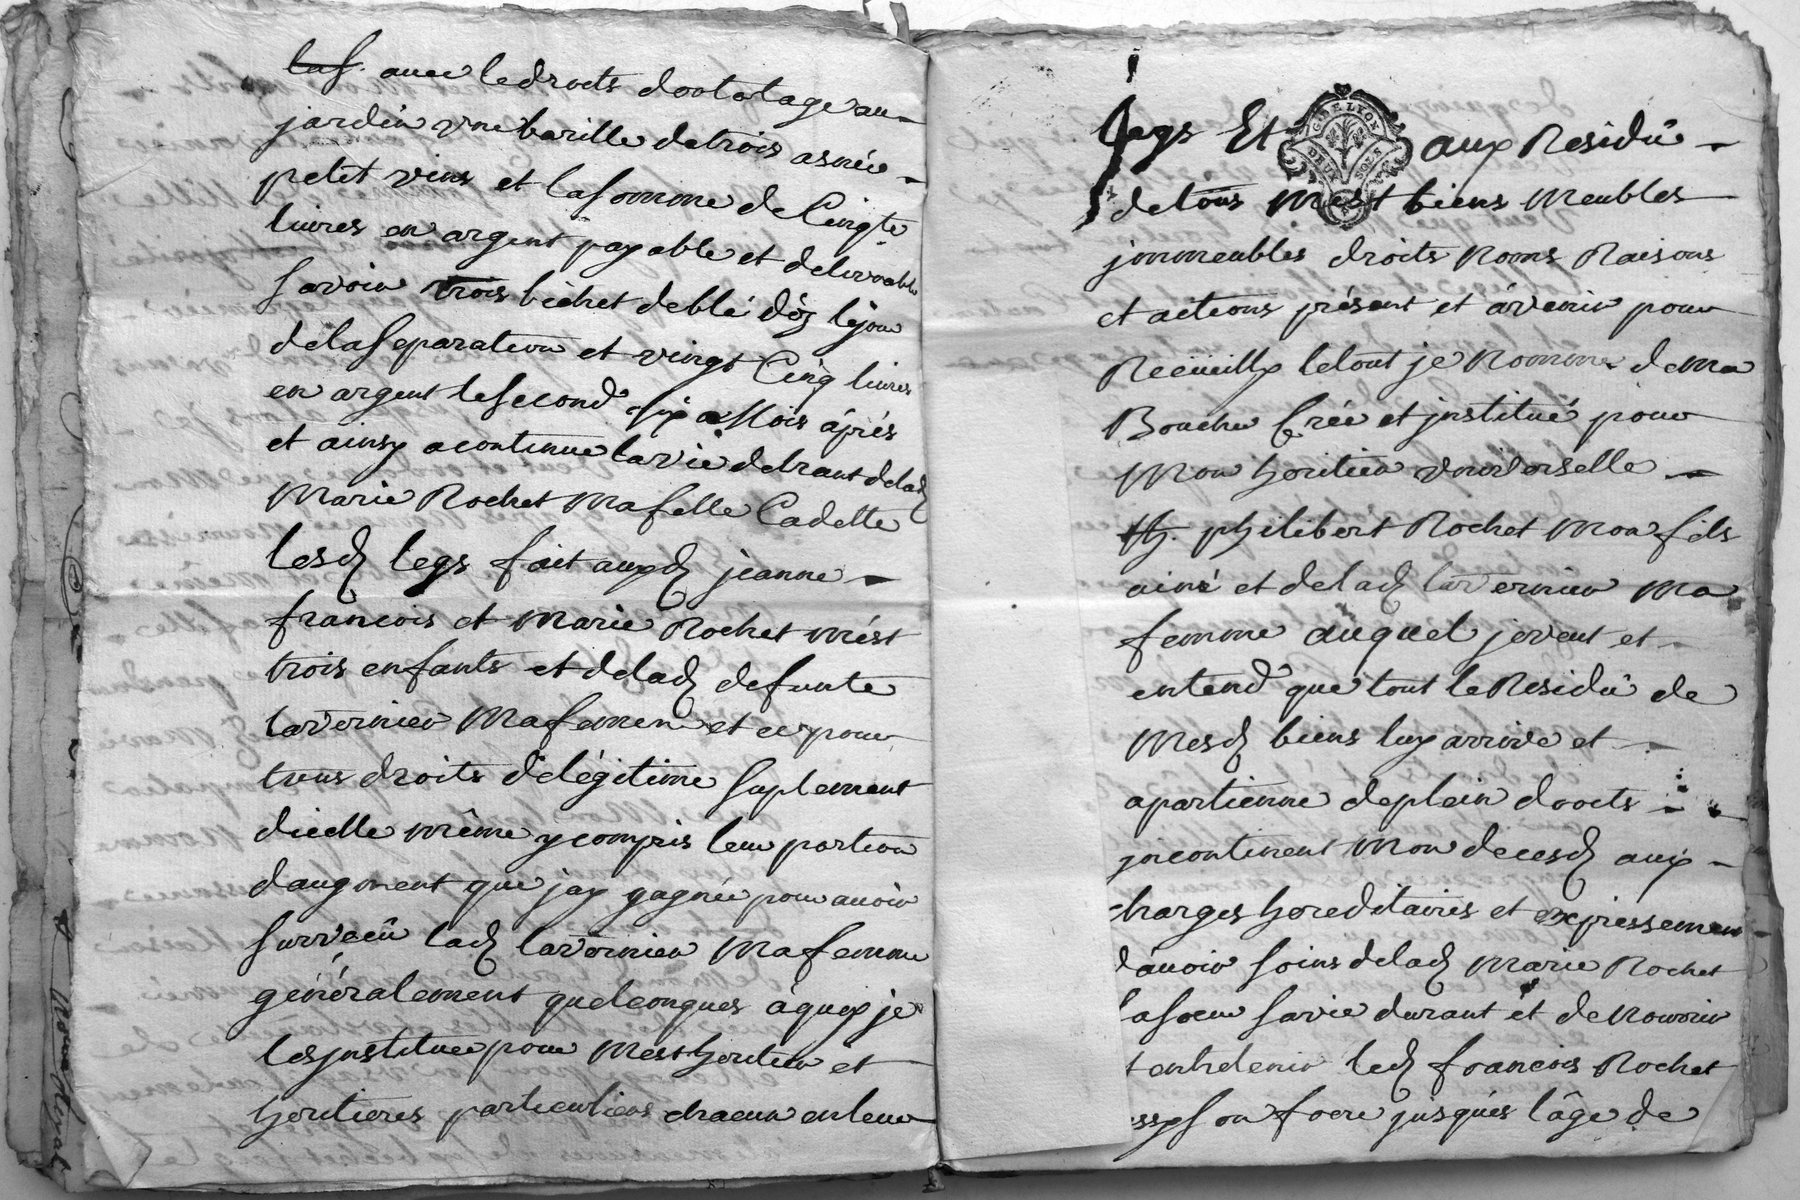 avec le droits dortolage au
jardin une barille de trois asnée
petit vins et la somme de Cinqte
livres en argent payable et delivrable
savoir trois bichet de blé dès le jour
de la separation et vingt Cinq livres
en argent le second six Mois áprés
et ainsy a continue la vie durant de lad
Marie Rochet Ma fille Cadette
lesd legs fait auxd jeanne
francois et Marie Rochet mést
trois enfants et de lad defunte
lavernier Ma femen et ce pour
tous droits de légitime suplement
dicelle même y compris leur portion
daugment que jay gagnée pour avoir
survecû lad lavernier Ma femme
généralement quelconques áquoy je
les jnstitue pour Mest heritier et
heritieres particuliers chacun en leur
legs Et aux Residû
GNE DE LYON
DEUX SOLS
de tous Mest biens Meubles
jmmeubles droits Noms Raisons
et actions présent et ávenir pour
Recüeilly le tout je Nomme de Ma
Bouche Crée et jnstitué pour
Mon heritier universelle
philibert Rochet Mon fils
ainé et de lad lavernier Ma
femme auquel je veut et
entend que tout le Residû de
Mesd biens luy arrive et
apartienne de plein droits
jncontinent Mon decesd aux
charges hereditaires et expressemen
dávoir soins de lad Marie Rochet
sa soeur sa vie durant et de Nourrir
entretenir led francois Rochet
son frere jusqués lâge de